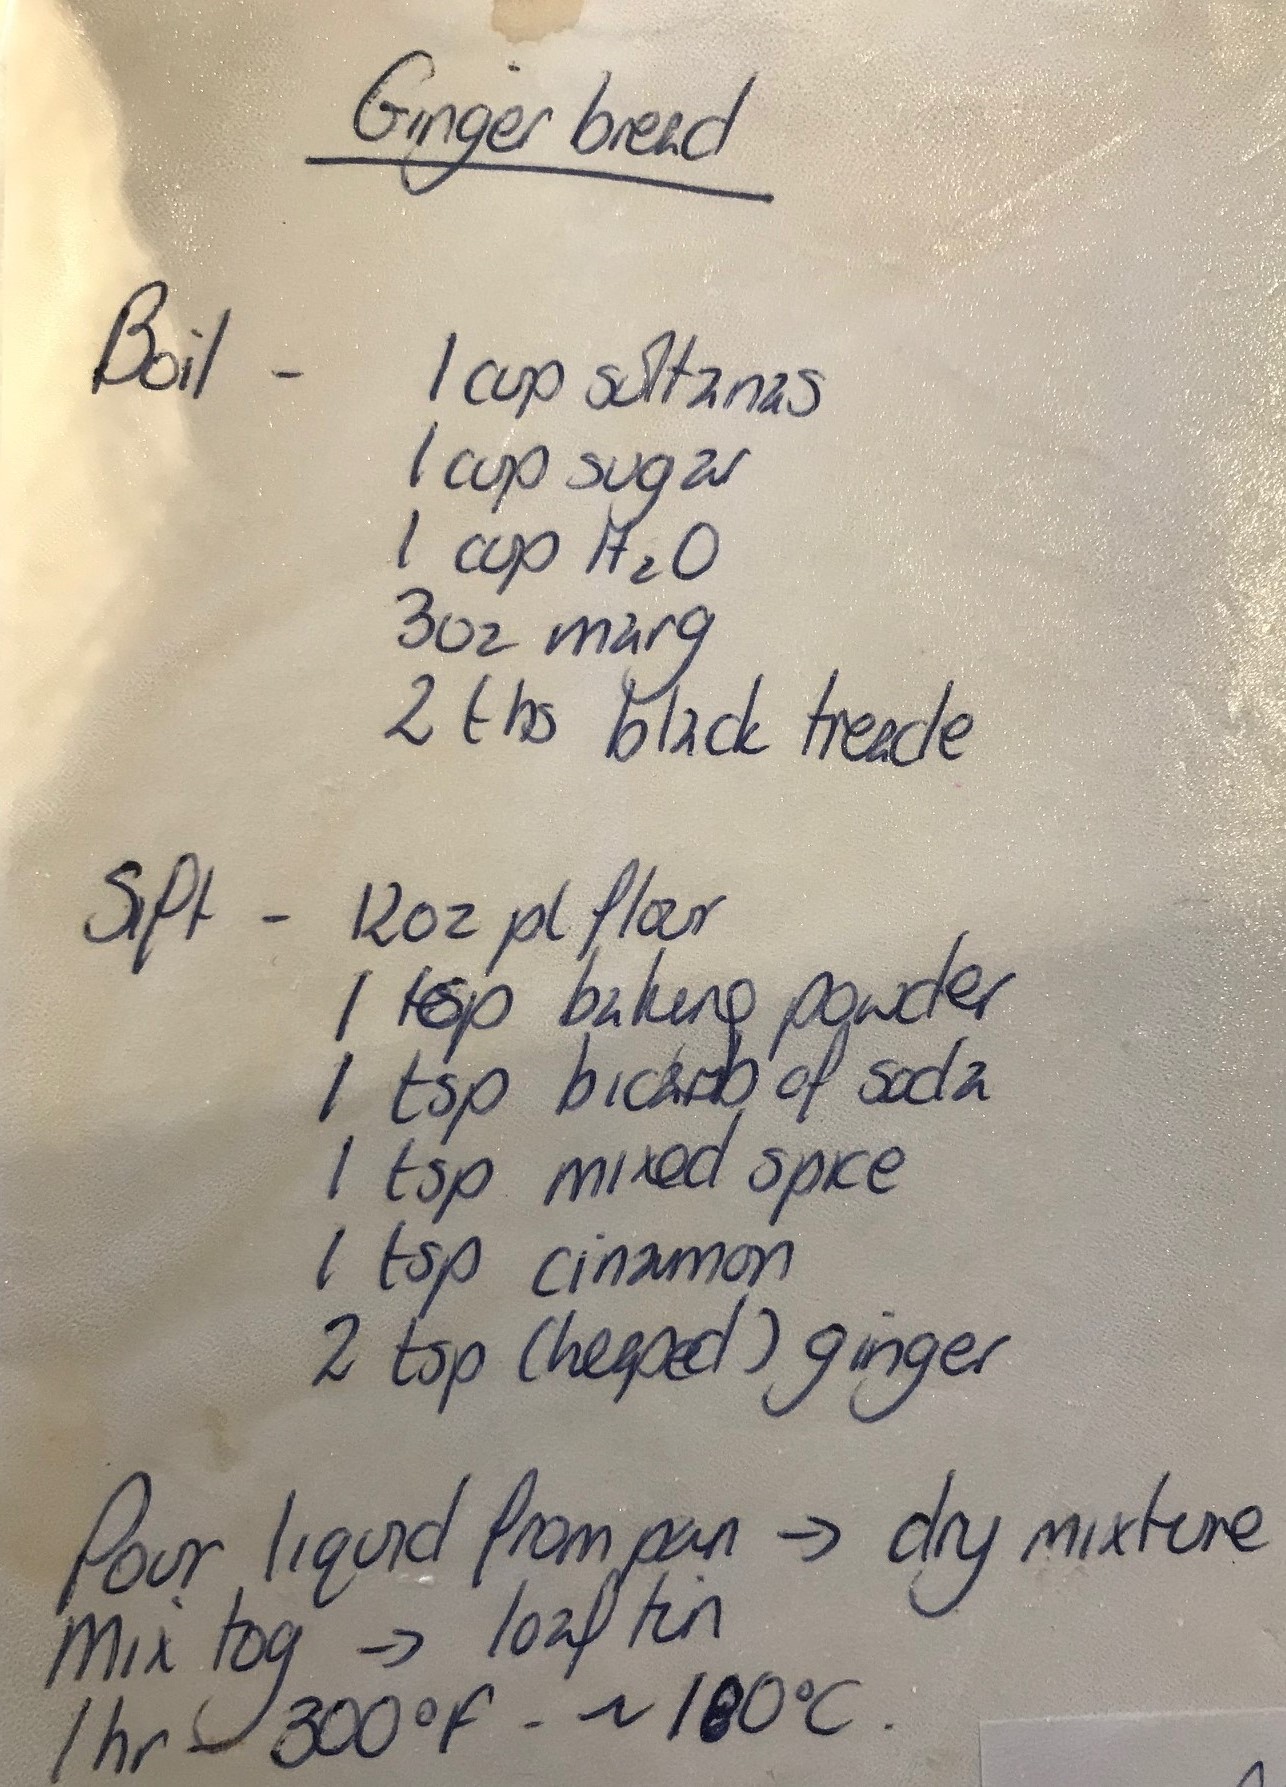 Ginger bread
Boil - 1 cup sultanas
1 cup sugar
1 cup H₂O
3oz marg
2 tbs black treacle
Sift - 12oz pl flour
1 tsp baking powder
1 tsp bicarb of soda
1 tsp mixed spice
1 tsp cinamon
2 tsp (heaped) ginger
Pour liquid from pan → dry mixture
Mix tog → loaf tin
1hr - 300°F - ~ 180°C.